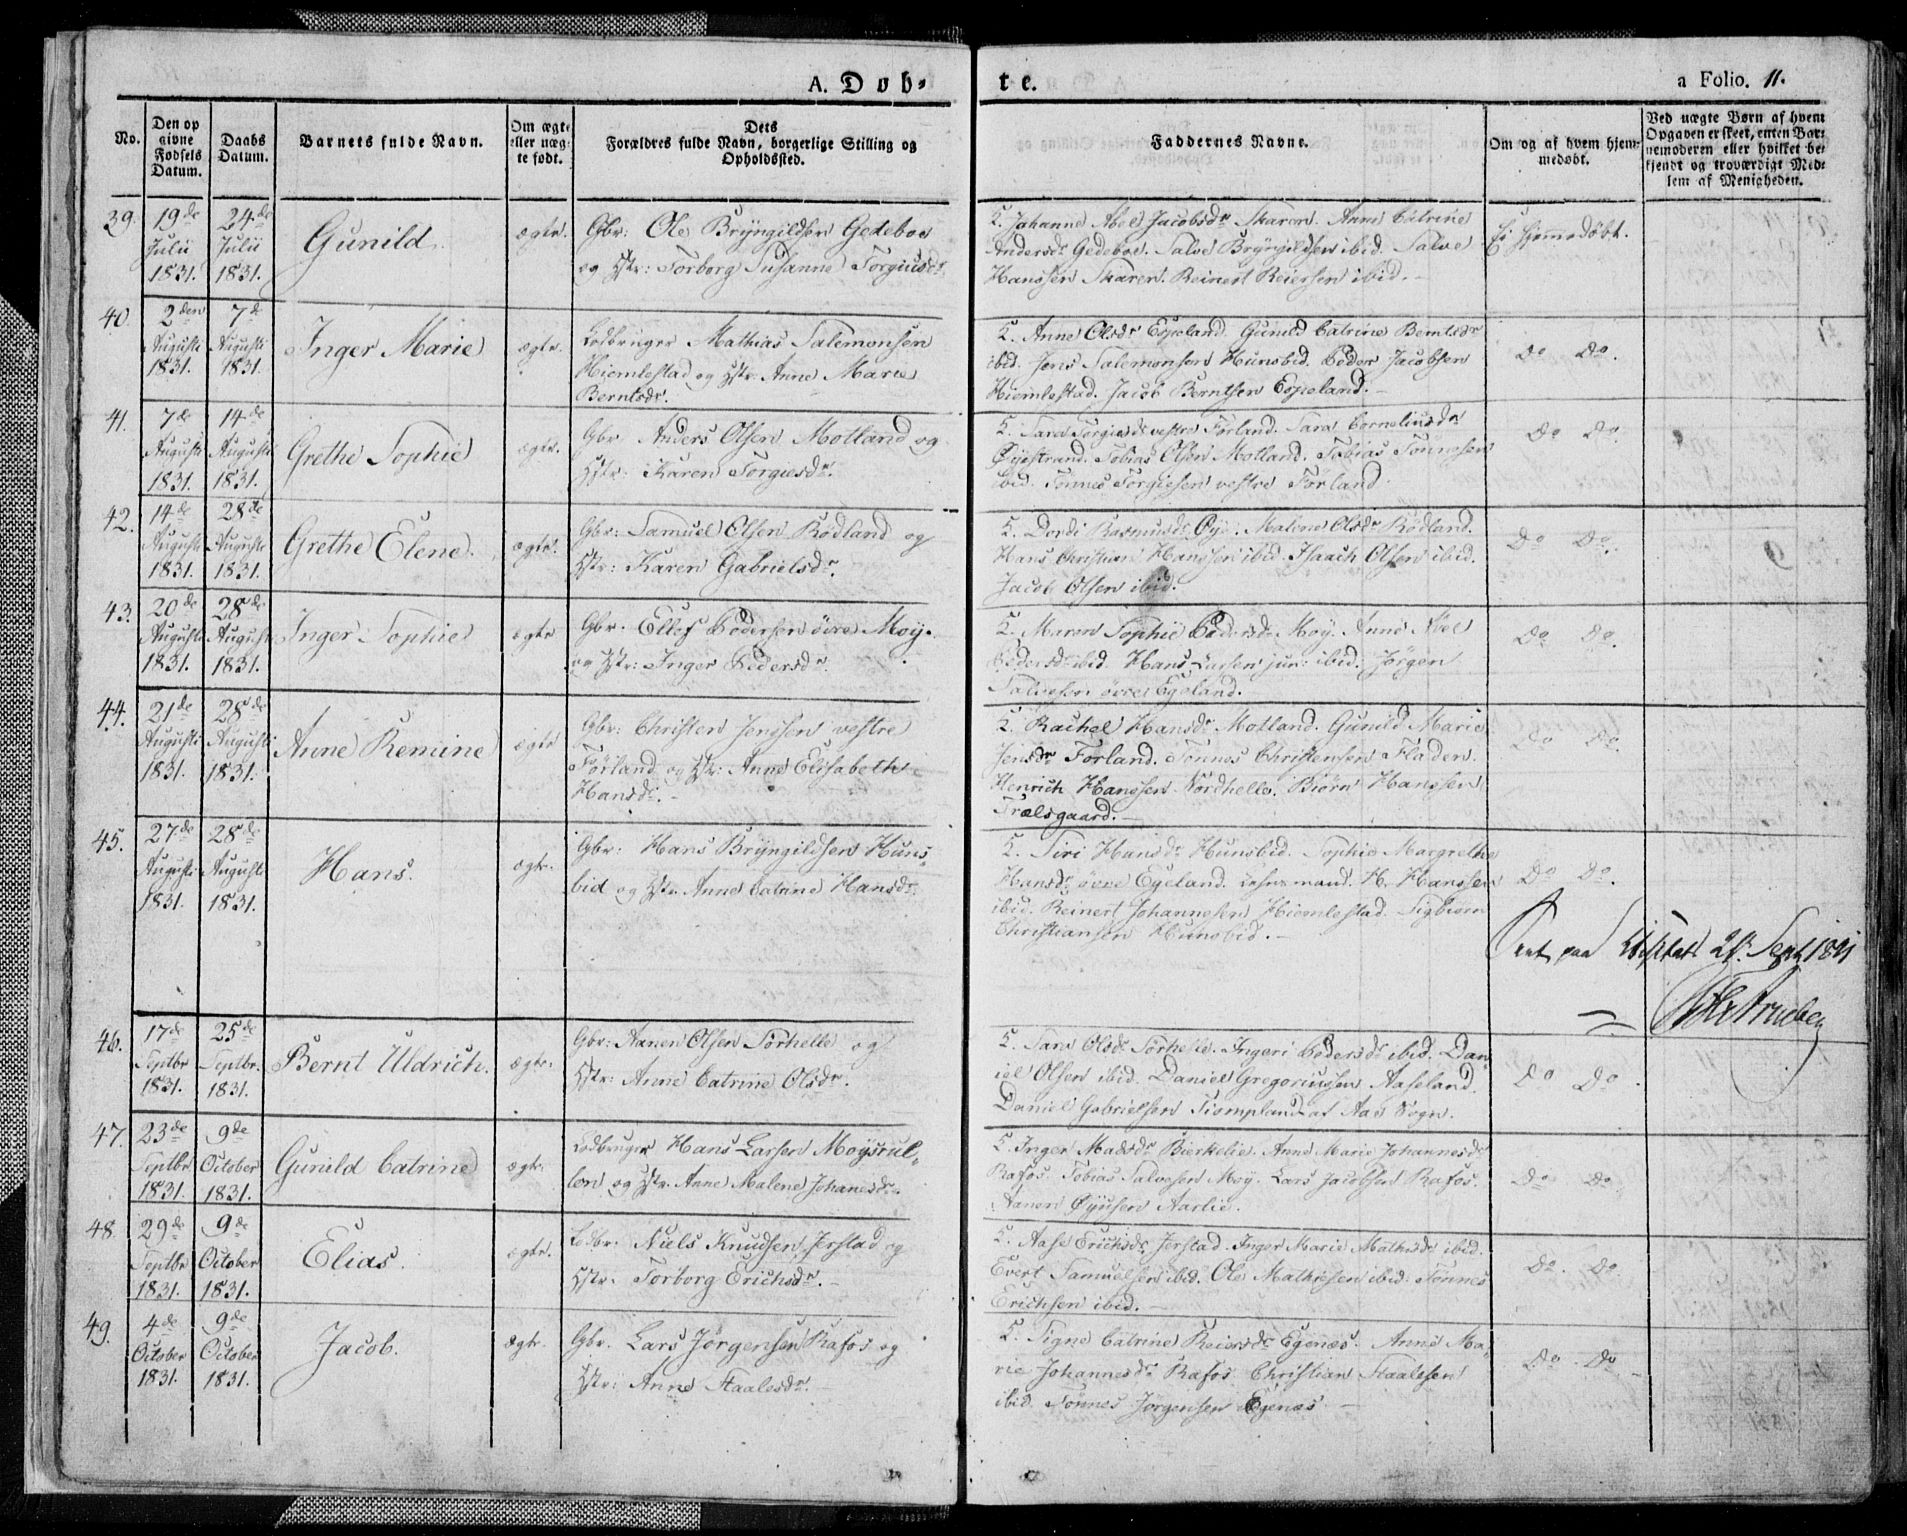 A. Døb-
te.
a Folio. 11.
No.
Den op
givne
Fødsels
Datum.
Daabs
Datum.
Barnets fulde Navn.
Om ægte
eller uæg-
te født.
Dets
Forældres fulde Navn, borgerlige Stilling og
Opholdssted.
Faddernes Navne.
Om og af hvem hjem-
medøbt.
Ved uægte Børn af hvem
Opgaven er skeet, enten Bar-
nemoderen eller hvilket be-
kjendt og troværdigt Med-
lem af Menigheden.
39.
19de
Julii
1831.
24de
Julii
1831.
Gunild
ægte.
Gbr: Ole Bryngildsen Gedeboe
og Hstr: Torborg Susanne Torgiusdr
K. Johanne Abel Jacobsdr Skaren. Anne Catrine
Andersdr Gedeboe. Salve Bryngildsen ibid. Salve
Hanssen Skaren. Reinert Reiersen ibid.
Ei hjemmedøbt.
40.
2den
Augusti
1831.
7de
Augusti
1831.
Inger Marie
ægte.
Lodbruger Mathias Salemonsen
Hiemlestad og Hstr. Anne Marie
Berntsdr.
K. Anne Olsdr Egeland. Gunild Catrine Berntsdr
ibid. Jens Salemonsen Hunsbid. Peder Jacobsen
Hiemlestad. Jacob Berntsen Egeland.
Do Do.
41.
7de
Augusti
1831.
14de
Augusti
1831.
Grethe Sophie
ægte.
Gbr Anders Olsen Motland og
Hstr: Karen Torgiesdr.
K. Sara Torgiesdr vestre Førland. Sara Corneliusdr
Øyestrand. Tobias Olsen Motland. Tobias Tønnesen
ibid. Tønnes Torgiesen vestre Førland.
Do Do.
42.
14de
Augusti
1831.
28de
Augusti
1831.
Grethe Elene.
ægte.
Gbr: Samuel Olsen Rødland og
Hstr: Karen Gabrielsdr.
K. Dordi Rasmusdr Øye. Malene Olsdr Rødland.
Hans Christian Hanssen ibid. Isaach Olsen ibid.
Jacob Olsen ibid.
Do Do.
43.
20de
Augusti
1831.
28de
Augusti
1831.
Inger Sophie
ægte
Gbr. Ellef Pedersen øvre Moy.
og Hstr: Inger Pedersdr.
K. Maren Sophie Pedersdr Moy. Anne Abel
Pedersdr ibid. Hans Larsen jun: ibid. Jørgen
Salvesen øvre Egeland.
Do Do.
44.
21de
Augusti
1831.
28de
Augusti
1831.
Anne Remine
ægte
Gbr: Christen Jenssen vestre
Førland og Hstr: Anne Elisabeth
Hansdr.
K. Rachel Hansdr Motland. Gunild Marie
Jensdr Førland. Tønnes Christensen Fladen.
Henrich Hanssen Nordhelle. Biørn Hanssen
Trælsgaard.
Do Do.
45.
27de
Augusti
1831.
28de
Augusti
1831.
Hans.
ægte.
Gbr: Hans Bryngildsen Huns-
bid og Hstr. Anne Catrine Hansdr.
K. Siri Hansdr Hunsbid. Sophie Margrethe
Hansdr øvre Egeland. Lehnsmand. H. Hanssen
ibid. Reinert Johannesen Hiemlestad. Sigbiørn
Christiansen Hunsbid.
Do Do.
Seet paa Visitats 21. Sept 1831
46.
17de
Septbr
1831.
25de
Septbr.
1831.
Bernt Uldrich.
ægte.
Gbr: Aanen Olsen Sørhelle og
Hstr: Anne Catrine Olsdr.
K. Sara Olsdr Sørhelle. Ingeri Pedersdr ibid. Dan-
iel Olsen ibid. Daniel Gregoriussen Aaseland.
Daniel Gabrielsen Tiompland af Aas Sogn.
Do Do.
47.
23de
Septbr
1831.
9de
October
1831.
Gunild Catrine
ægte.
Lodbruger Hans Larsen Moysrul-
len og Hstr. Anne Malene Johanesdr.
K. Inger Madsdr Bierkelie. Anne Marie Johannesdr
Rafos. Tobias Salvesen Moy. Lars Jacobsen Rafos.
Aanen Øyusen Aarlie.
Do Do.
48.
29de
Septbr
1831.
9de
October
1831.
Elias.
ægte.
Lodbr. Niels Knudsen Jerstad og
Hstr. Torborg Erichsdr.
K. Aase Erichsdr Jerstad. Inger Marie Mathisdr ibid.
Evert Samuelsen ibid. Ole Mathiesen ibid. Tønnes
Erichsen ibid.
Do. Do.
49.
4de
October
1831.
9de
October
1831.
Jacob.
ægte.
Gbr. Lars Jørgensen Rafos og
Hstr: Anne Staalesdr.
K. Signe Catrine Reiersdr Egenæs. Anne Ma-
rie Johannesdr Rafos. Christian Staalesen
ibid. Tønnes Jørgensen Egenæs.
Do. Do